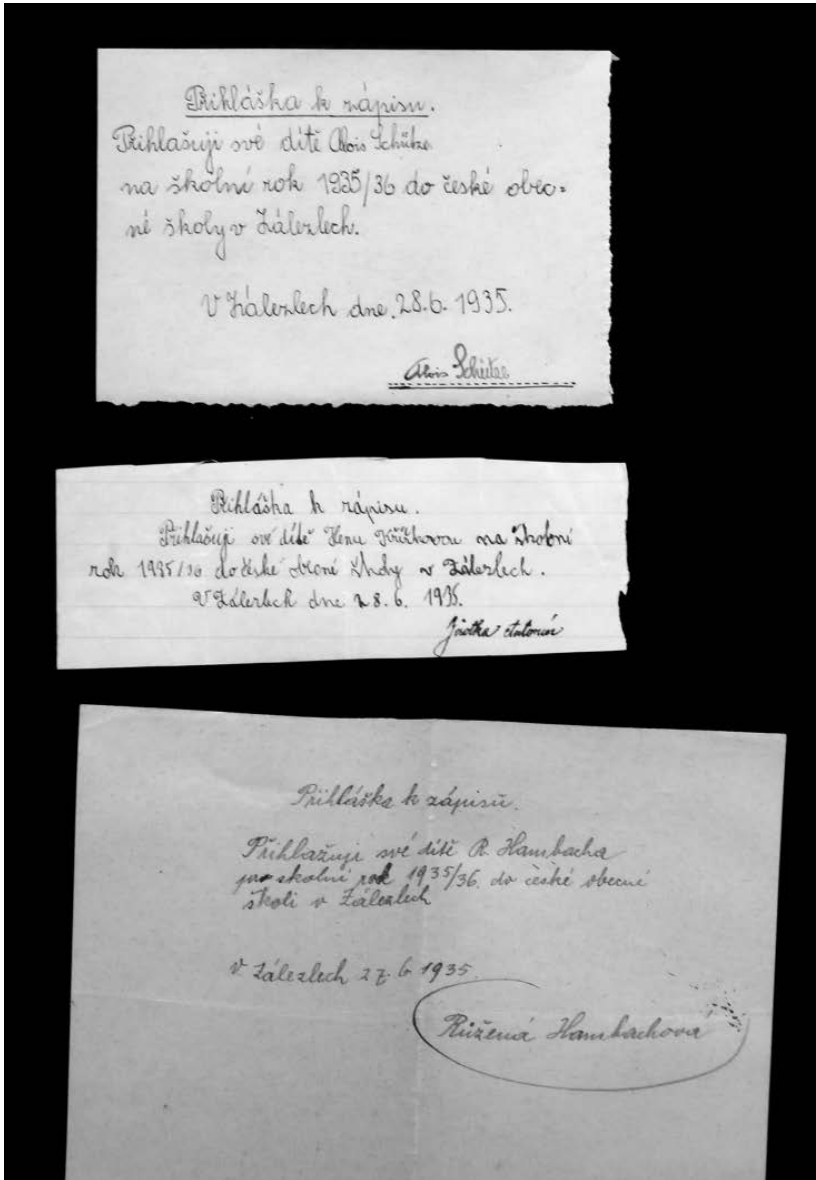 Přihláška k zápisu.
Přihlašuji své dítě Alois Schütze
na školní rok 1935/36 do české obec=
né školy v Zálezlech.
V Zálezlech dne 28.6. 1935.
Alois
Přihláška k zápisu.
Přihlašuji své dítě na školní
rok 1935/36 do české obecné školy v Zálezlech.
V Zálezlech dne 28. 6. 1935.
Antonín
Přihláška k zápisu.
Přihlažuji své dítě R. Hambacha
pro skolní rok 1935/36. do české obecné
školi v Zálezlech
V Zálezlech 27. 6. 1935.
Růžená Hambachová